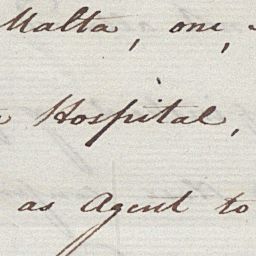 Malta, one,
Hospital,
as Agent to